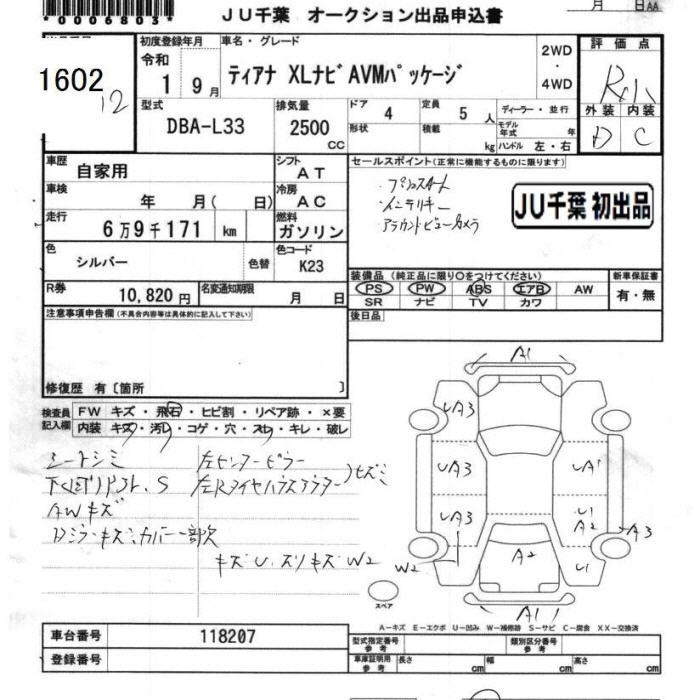 *0006803*
JU千葉 オークション出品申込書
月 日AA
1602
12
初度登録年月
令和
1 9月
車名・グレード
ティアナ XLナビAVMパッケージ
2WD
・
4WD
評価点
外装 内装
D C
型式
DBA-L33
排気量
2500
CC
ドア 4
形状
定員 5 人
積載 kg
ディーラー・並行
モデル年式 年
ハンドル 左・右
車歴
自家用
シフト
AT
車検
年 月( 日)
冷房
AC
走行
6万9千171 km
燃料
ガソリン
色
シルバー
色替
色コード
K23
R券
10,820円
名変通知期限
月 日
セールスポイント(正常に機能するものに限ります)
・プッシュスタート
・インテリキー
・アラウンドビューカメラ
JU千葉 初出品
装備品(純正品に限り○をつけてください)
PS PW ABS エアB AW
SR ナビ TV カワ
新車保証書
有・無
後日品
注意事項申告欄(不具合内容等は具体的に記入して下さい)
修復歴 有〔箇所 〕
検査員
記入欄
FW キズ・飛石・ヒビ割・リペア跡・×要
内装 キズ・汚レ・コゲ・穴・スレ・キレ・破レ
シートシミ
下廻り S
AWキズ
カバー一部欠
左センターピラー
キズU、スリキズW2
A1
UA3
UA3
UA3
W2
UA1
U1
A2
A3
A2
U1
A1
スペア
A-キズ E-エクボ U-凹み W-補修跡 S-サビ C-腐食 XX-交換済
車台番号
118207
登録番号
型式指定番号
参考
類別区分番号
参考
車庫証明用
参考
長さ cm
幅 cm
高さ cm